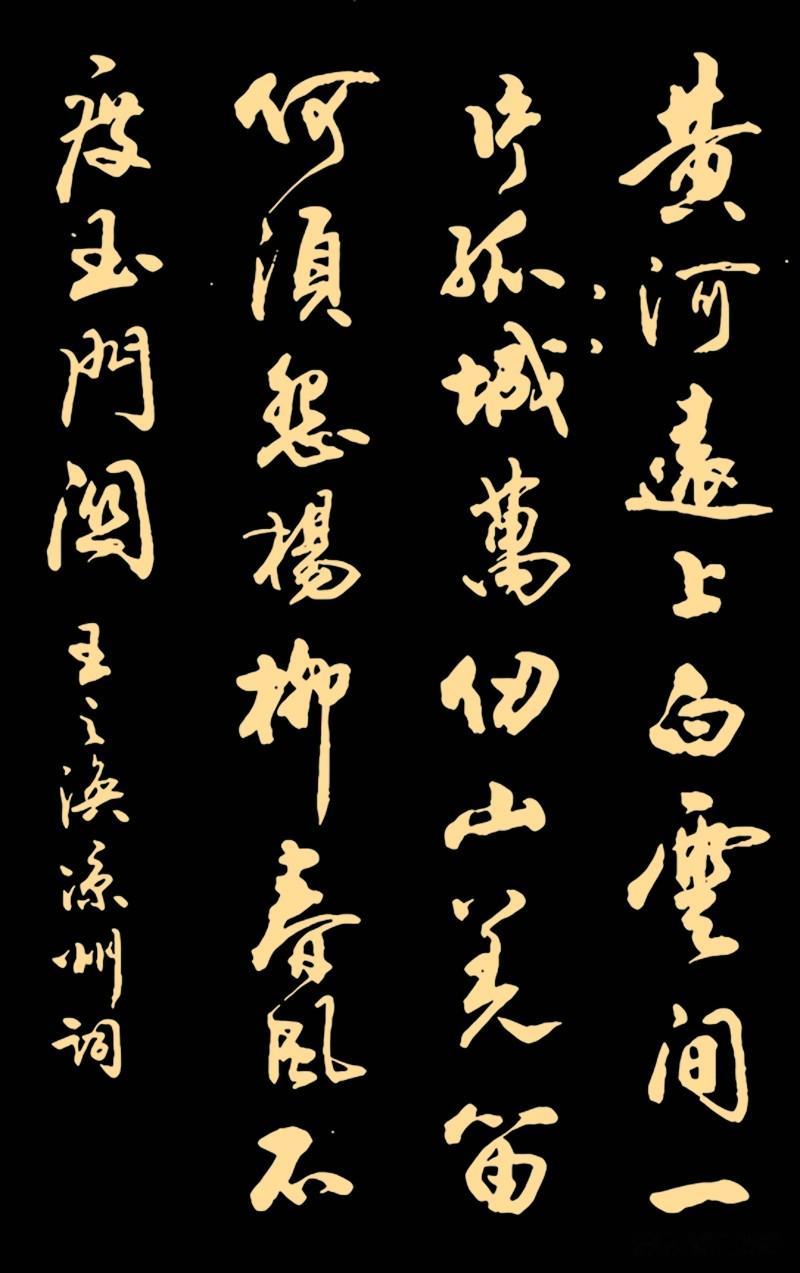 黄河遠上白雲间一
片孤城萬仞山羌笛
何須怨楊柳春風不
度玉門関
王之渙凉州詞